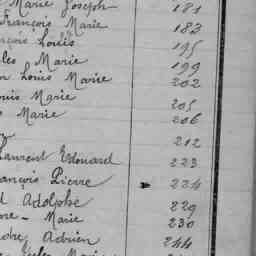 Marie Joseph 181
François Marie 183
nçois Louis 195
les Marie 199
Louis Marie 202
ouis Marie 205
Marie 206
212
Laurent Edouard 223
ançois Pierre 224
Adolphe 229
re - Marie 230
Adrien 244